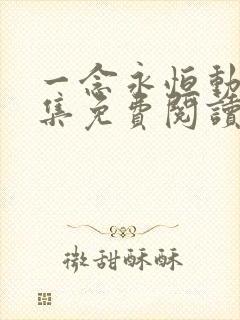 一念永恒動
集免費閱讀
微甜酥酥